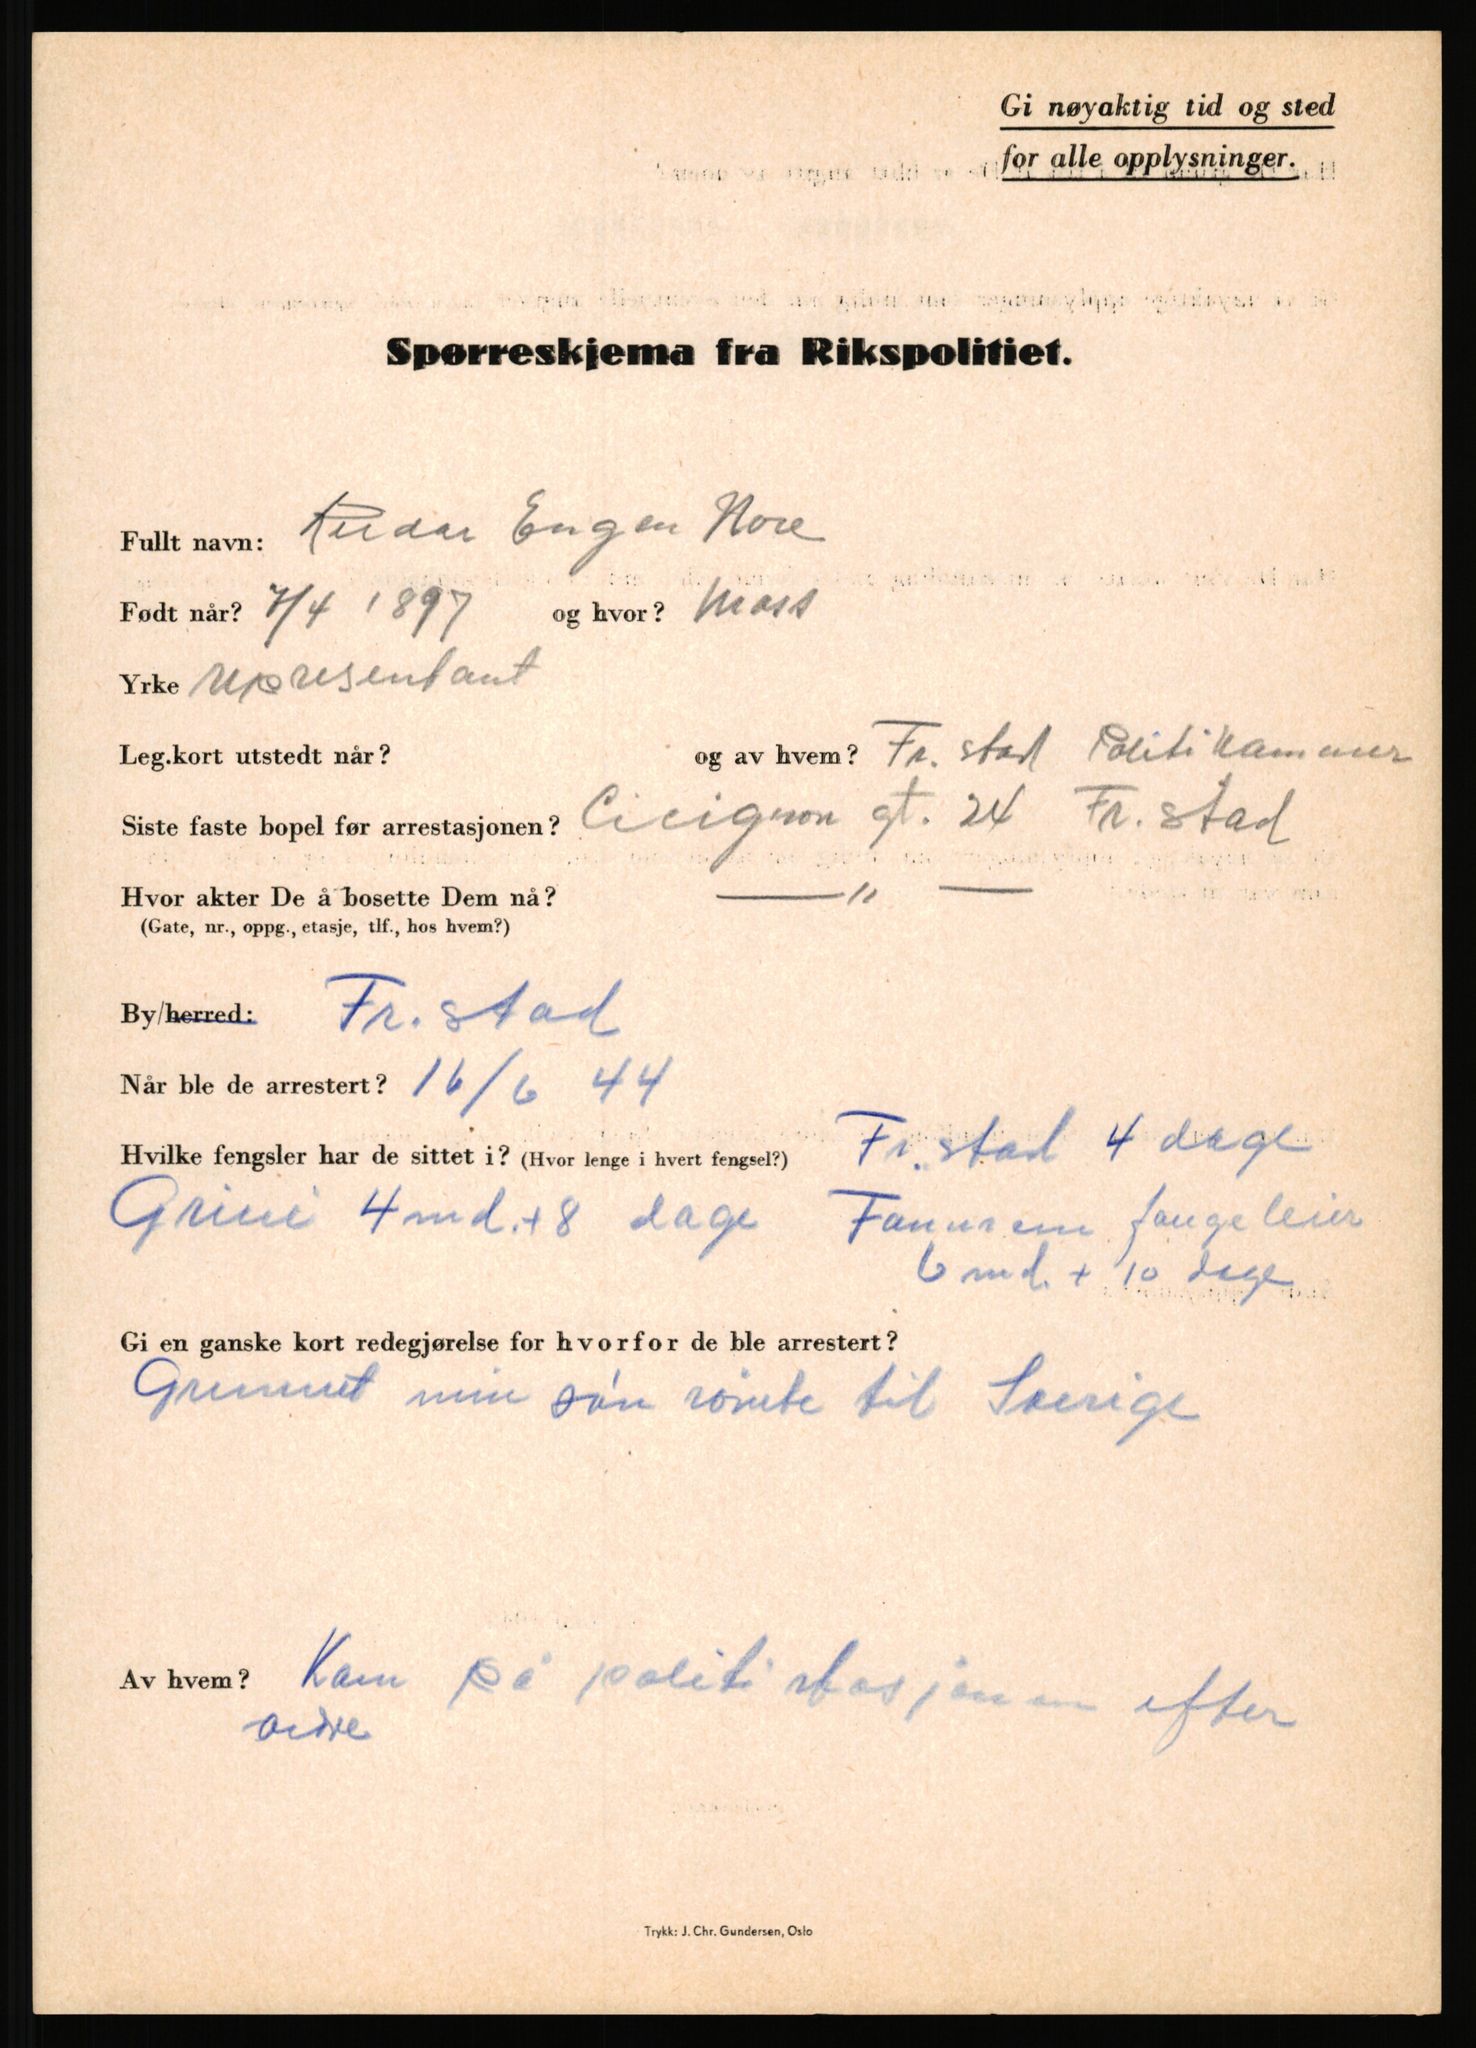 Gi nøyaktig tid og sted
for alle opplysninger.
Spørreskjema fra Rikspolitiet.
Fullt navn: Reidar Engen Hore
Født når? 7/4 1897 og hvor? Moss
Yrke representant
Leg.kort utstedt når? og av hvem? Fr. stad Politikammer
Siste faste bopel før arrestasjonen? Cicignon gt. 24 Fr. stad
Hvor akter De å bosette Dem nå? — " —
(Gate, nr., oppg., etasje, tlf., hos hvem?)
By/herred: Fr. stad
Når ble de arrestert? 16/6 44
Hvilke fengsler har de sittet i? (Hvor lenge i hvert fengsel?) Fr. stad 4 dage
Grini 4 md. + 8 dage Fannrem fangeleir
6 md. + 10 dage
Gi en ganske kort redegjørelse for hvorfor de ble arrestert?
Grunnet min sön römte til Sverige
Av hvem? Kom på politistasjonen efter
ordre
Trykk: J. Chr. Gundersen, Oslo